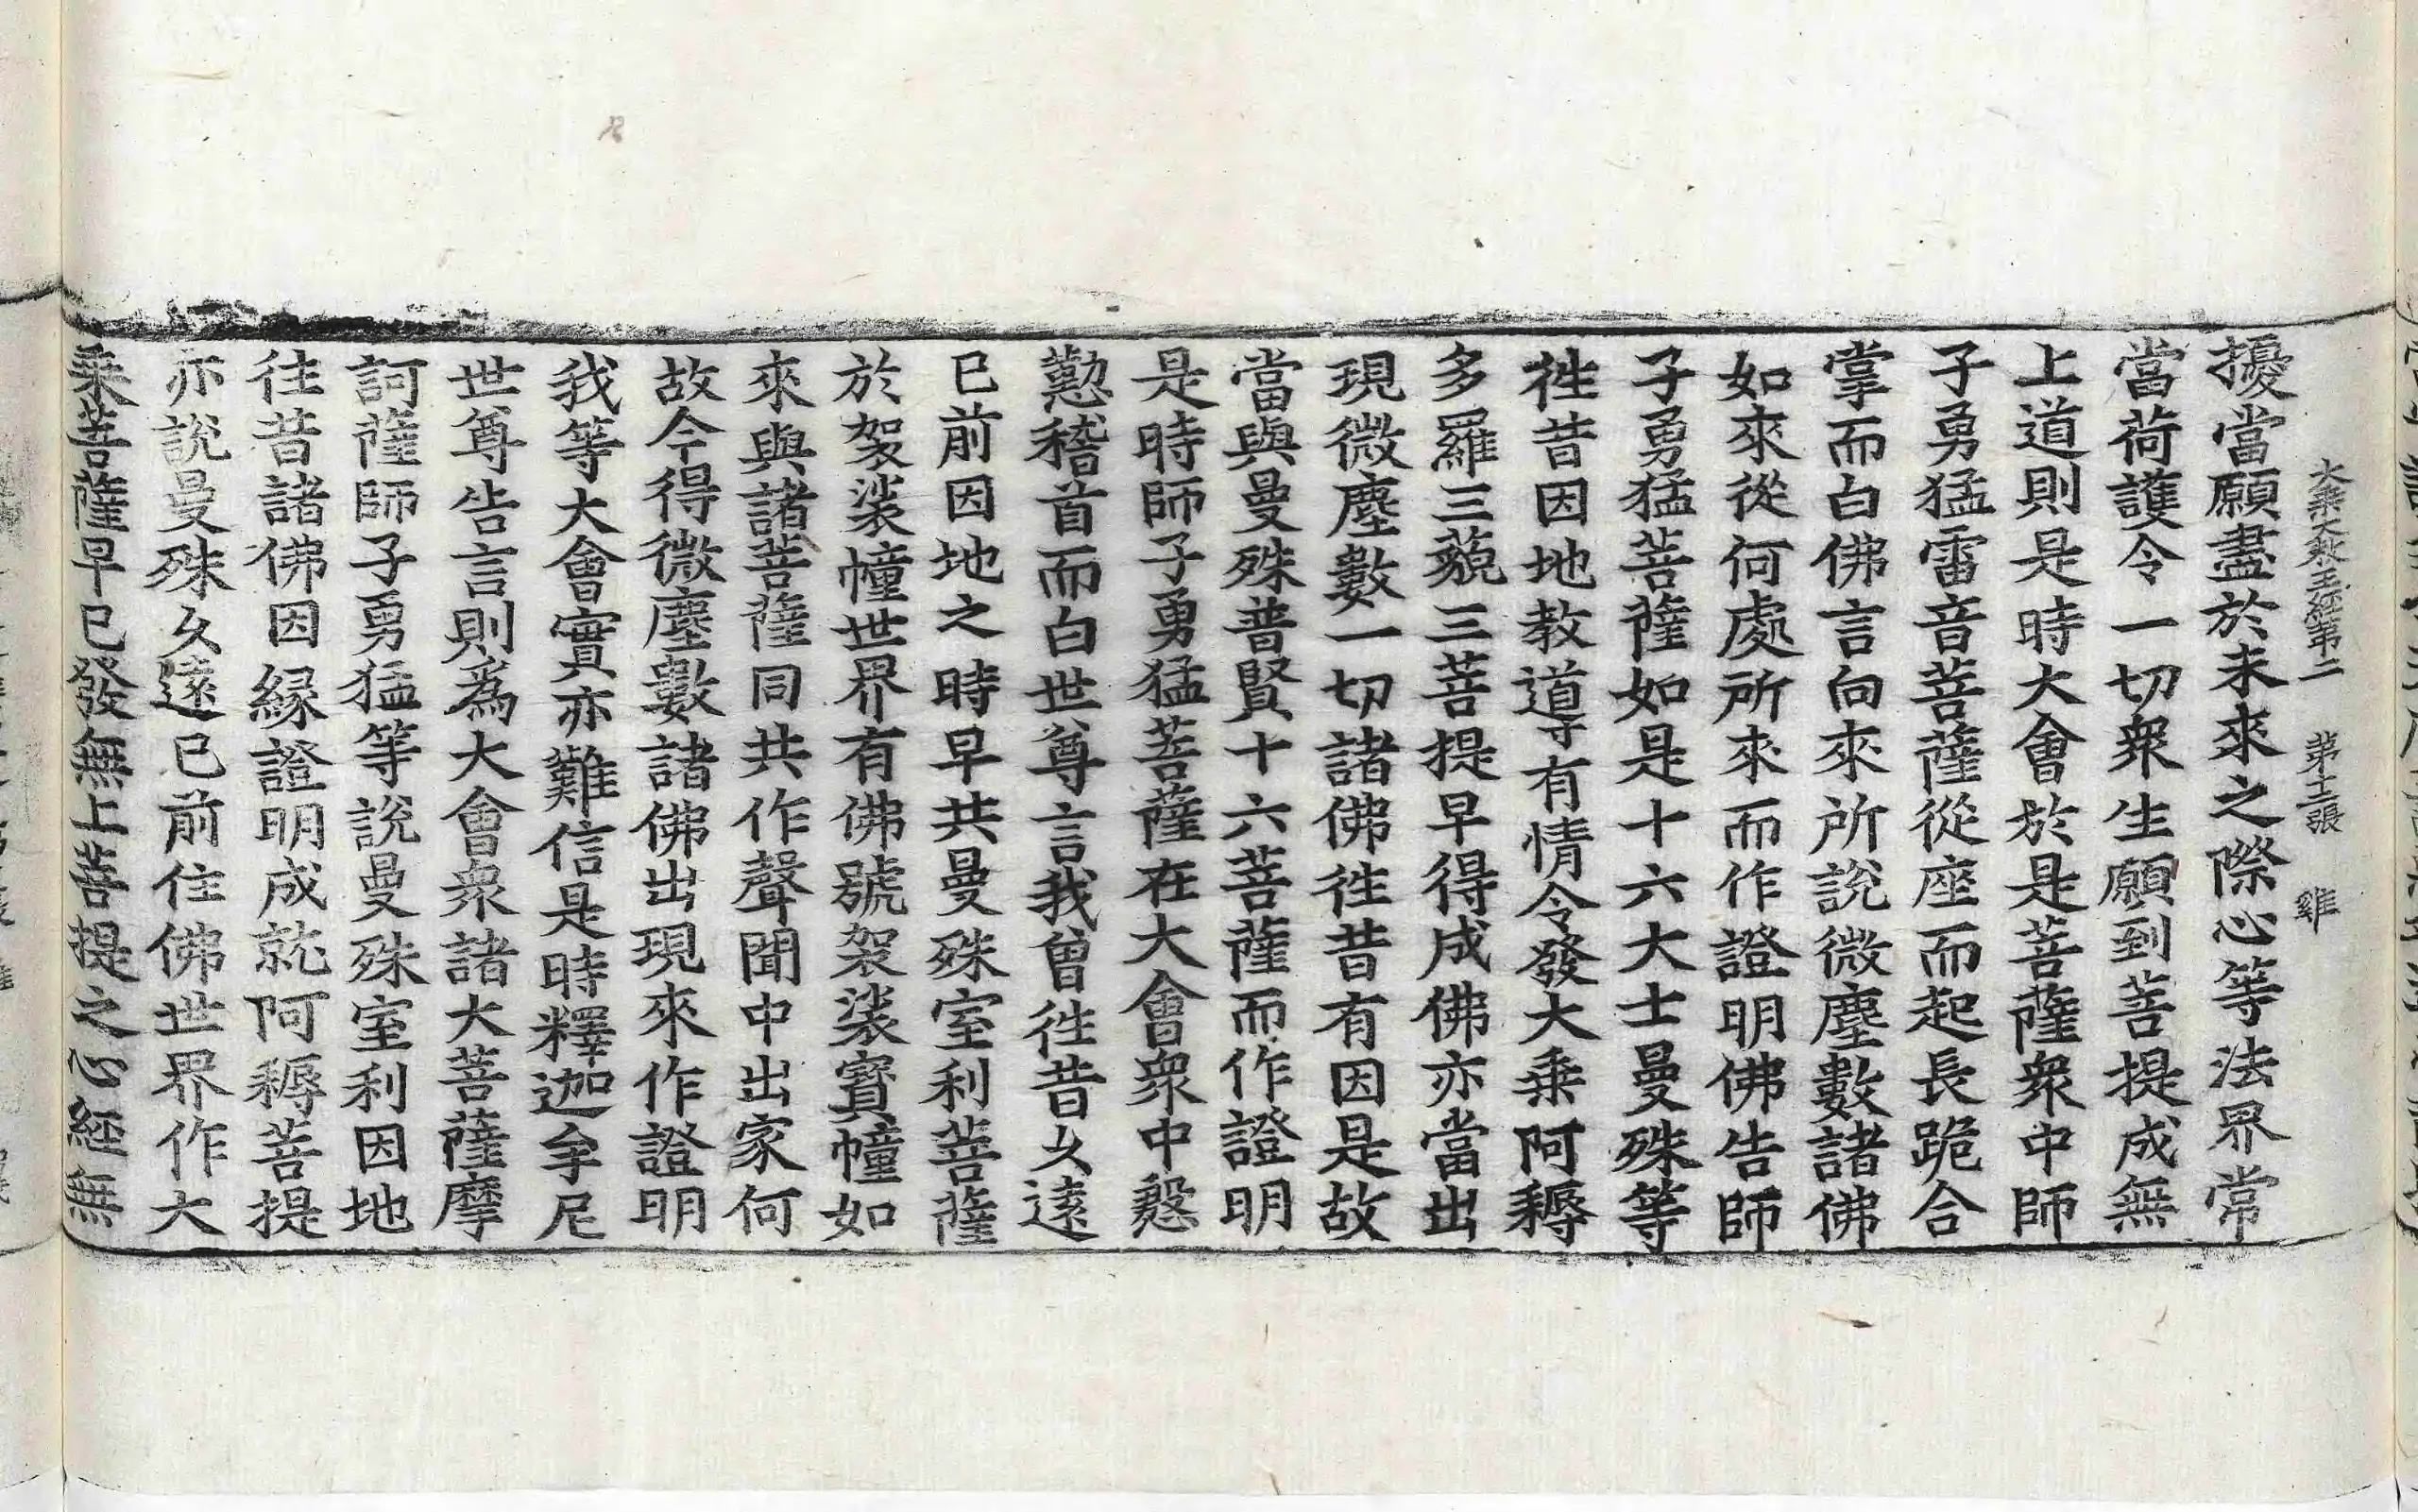 大乘大教王經第二　第十二張　雞
擾當願盡於未來之際心等法界常
當荷護令一切衆生願到菩提成無
上道則是時大會於是菩薩衆中師
子勇猛雷音菩薩從座而起長跪合
掌而白佛言向來所說微塵數諸佛
如來從何處所來而作證明佛告師
子勇猛菩薩如是十六大士曼殊等
徃昔因地教道導有情令發大乗阿耨
多羅三藐三菩提早得成佛亦當出
現微塵數一切諸佛徃昔有因是故
當與曼殊普賢十六菩薩而作證明
是時師子勇猛菩薩在大會衆中慇
懃稽首而白世尊言我曾徃昔久遠
已前因地之時早共曼殊室利菩薩
於袈裟幢世界有佛號袈裟寶幢如
來與諸菩薩同共作聲聞中出家何
故今得微塵數諸佛出現來作證明
我等大會實亦難信是時釋迦牟尼
世尊告言則爲大會衆諸大菩薩摩
訶薩師子勇猛等說曼殊室利因地
往昔諸佛因縁證明成就阿耨菩提
亦說曼殊久遠已前住佛世界作大
乗菩薩早已發無上菩提之心經無